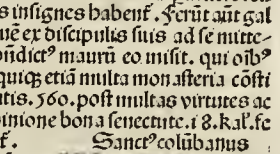 s insignes habent̃. Ferũt aũt gal
uẽ ex discipulis suis ad se mitte⸗
ndictꝰ maurũ eo misit. qui oĩbꝰ
quiqꝫ etiã multa monasteria cõsti
tis. 560. post multas virtutes ac
pinione bona senectute. 18. kal̃. fe
Sanctꝰ colũbanus